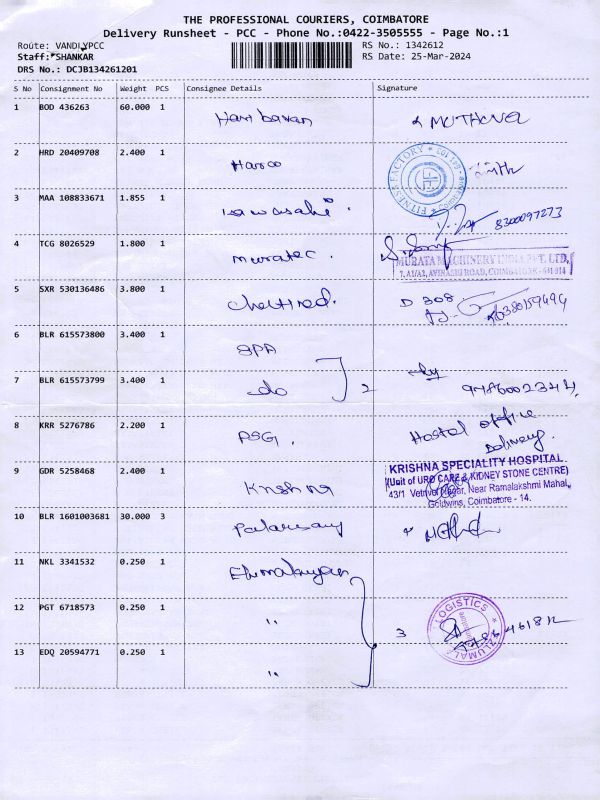 THE PROFESSIONAL COURIERS, COIMBATORE
Delivery Runsheet - PCC - Phone No.:0422-3505555 - Page No.:1
Route: VANDLYPCC RS No.: 1342612
Staff:*SHANKAR RS Date: 25-Mar-2024
DRS No.: DCJB134261201
S No Consignment No Weight PCS Consignee Details Signature
1 BOD 436263 60.000 1 Hari bavan
2 HRD 20409708 2.400 1 Harco
FITNESS FACTORY
3 MAA 108833671 1.855 1 kawasaki. 8300097273
4 TCG 8026529 1.800 1 muratec.
MURATA MACHINERY INDIA PVT. LTD,
7, A1/A2, AVINASHI ROAD, COIMBATORE - 641 014
5 SXR 530136486 3.800 1 chettinad. D 308
6 BLR 615573800 3.400 1
7 BLR 615573799 3.400 1 do 2
8 KRR 5276786 2.200 1 PSG1. Hostal office
Delivery.
9 GDR 5258468 2.400 1 Krishna
KRISHNA SPECIALITY HOSPITAL
(Unit of URO CARE & KIDNEY STONE CENTRE)
43/1 Vetrivel Nagar, Near Ramalakshmi Mahal,
Goldwins, Coimbatore - 14.
10 BLR 1601003681 30.000 3
11 NKL 3341532 0.250 1
12 PGT 6718573 0.250 1 " 3
LOGISTICS
13 EDQ 20594771 0.250 1 "